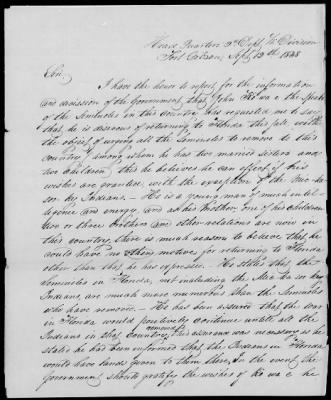 Head Quarters 2d Dept. W. Division
Fort Gibson, Sept. 12th 1838
Sir,
I have the honor to report for the information
and decision of the Government, that John Ho wa e the
of the Seminoles in this country has requested me to say
that, he is desirous of returning to Florida this fall with
the object of urging all the Seminoles to remove to this
Country, among whom he has two married sisters and
two children; this he believes he can effect if his
wishes are, with the exception of the Mic-ka-
soo ky Indians. He is a young man of much intel-
ligence and energy and as his Mother, one of his children
two or three brothers and other relations are now in
this country, there is much reason to believe that, he
could have no other motives for returning to Florida
other than that, he has expressed. He states that the
Seminoles in Florida, not including the Mic ka soo ky
Indians, are much more numerous than the Seminoles
who have removed. He has been assured that the war
in Florida would positively continue until all the
Indians in that Country removed; this assurance was necessary as he
states he had been informed that, the Indians in Florida
would have lands given to them there. In the event, the
Government should gratify the wishes of Ho wa e he